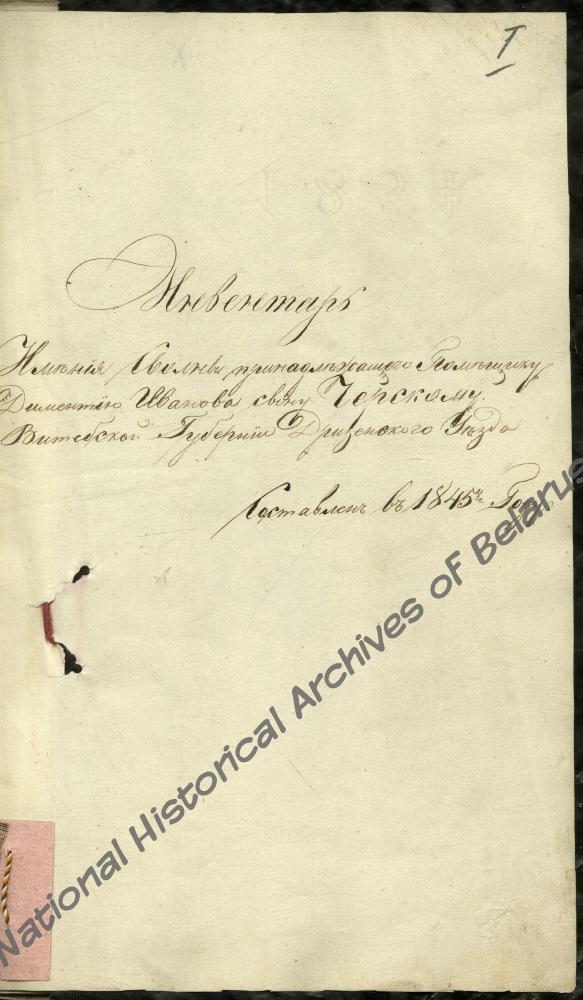 I
Инвентарь
Имѣнія Свольны принадлежащего Помѣщику
Диментію Иванова сыну Черскому.
Витебской Губерніи Дризенского Уѣзда
Составленъ въ 1845мъ Году
National Historical Archives of Belarus